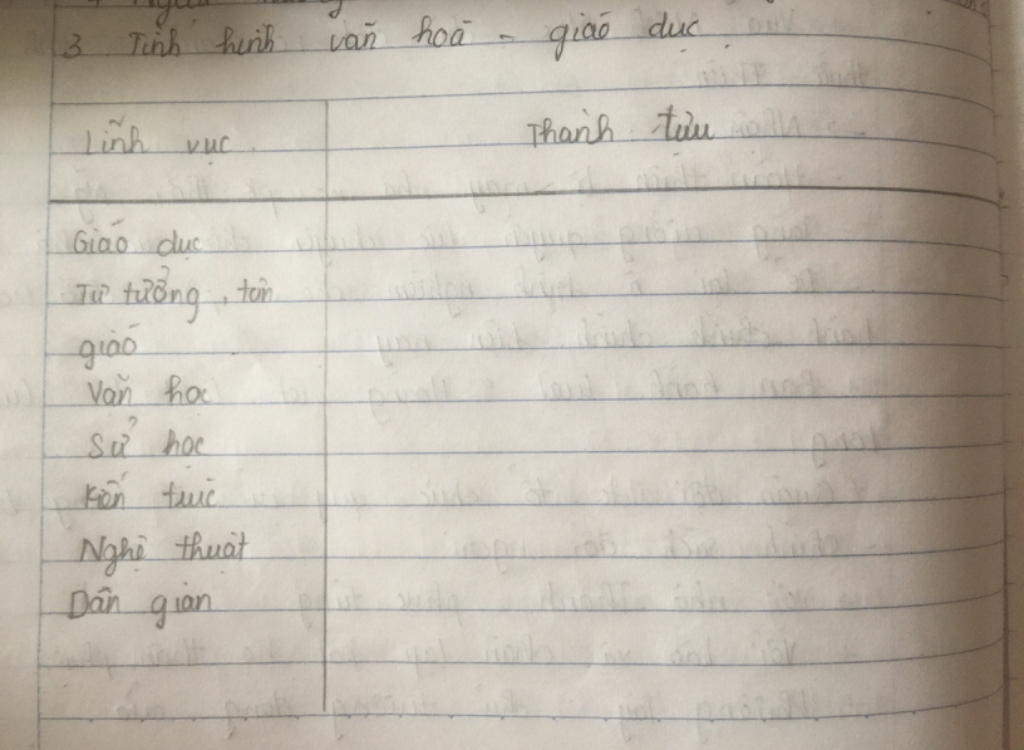 3 Tình hình văn hoá - giáo dục
Lĩnh vực
Thành tựu
Giáo dục
Tư tưởng, tôn
giáo
Văn học
Sử học
Kiến trúc
Nghệ thuật
Dân gian